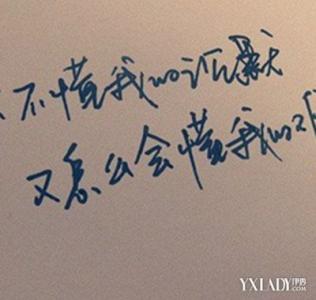 不懂我的沉默
又怎么会懂我的
YXLADY伊秀
.com